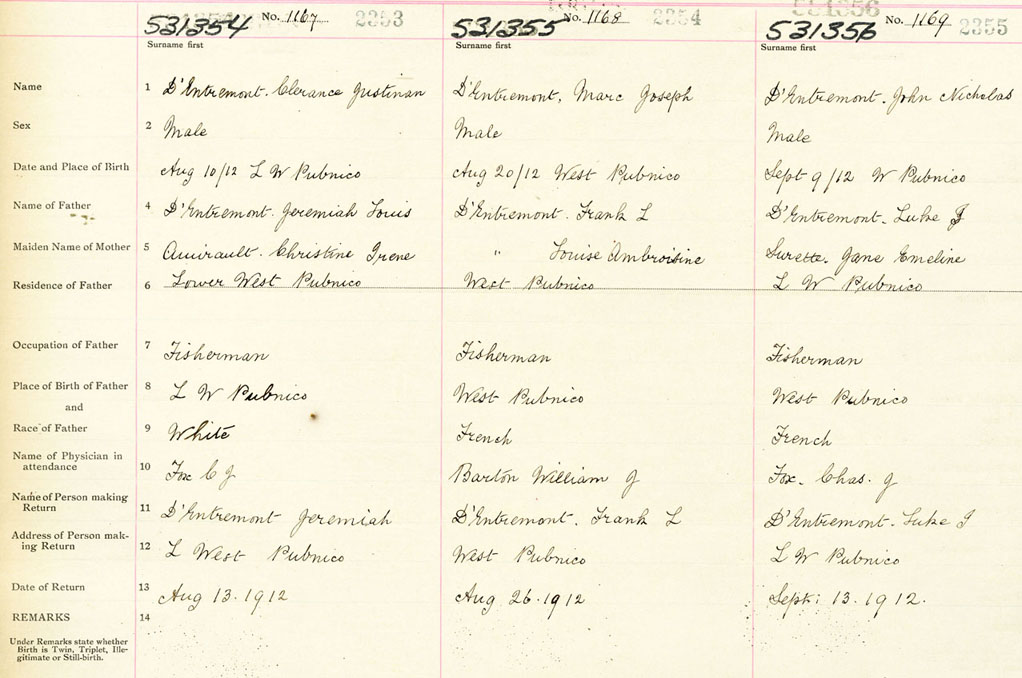 531354 No. 1167 2353 531355 No. 1168 2354 531356 No. 1169 2355
Surname first Surname first Surname first
Name 1 D'Entremont. Clerance Justinan D'Entremont, Marc Joseph D'Entremont. John Nicholas
Sex 2 Male Male Male
Date and Place of Birth 3 Aug 10/12 L W Pubnico Aug 20/12 West Pubnico Sept 9/12 W Pubnico
Name of Father 4 D'Entremont. Jeremiah Louis D'Entremont. Frank L D'Entremont. Luke J
Maiden Name of Mother 5 Amirault. Christine Irene " Louise Ambroisine Surette. Jane Emeline
Residence of Father 6 Lower West Pubnico West Pubnico L W Pubnico
Occupation of Father 7 Fisherman Fisherman Fisherman
Place of Birth of Father 8 L W Pubnico West Pubnico West Pubnico
and
Race of Father 9 White French French
Name of Physician in
attendance 10 Fox C J Barton William J Fox. Chas. J
Name of Person making
Return 11 D'Entremont Jeremiah D'Entremont. Frank L D'Entremont. Luke J
Address of Person mak-
ing Return 12 L West Pubnico West Pubnico L W Pubnico
Date of Return 13 Aug 13. 1912 Aug 26. 1912 Sept: 13. 1912.
REMARKS 14
Under Remarks state whether
Birth is Twin, Triplet, Ille-
gitimate or Still-birth.